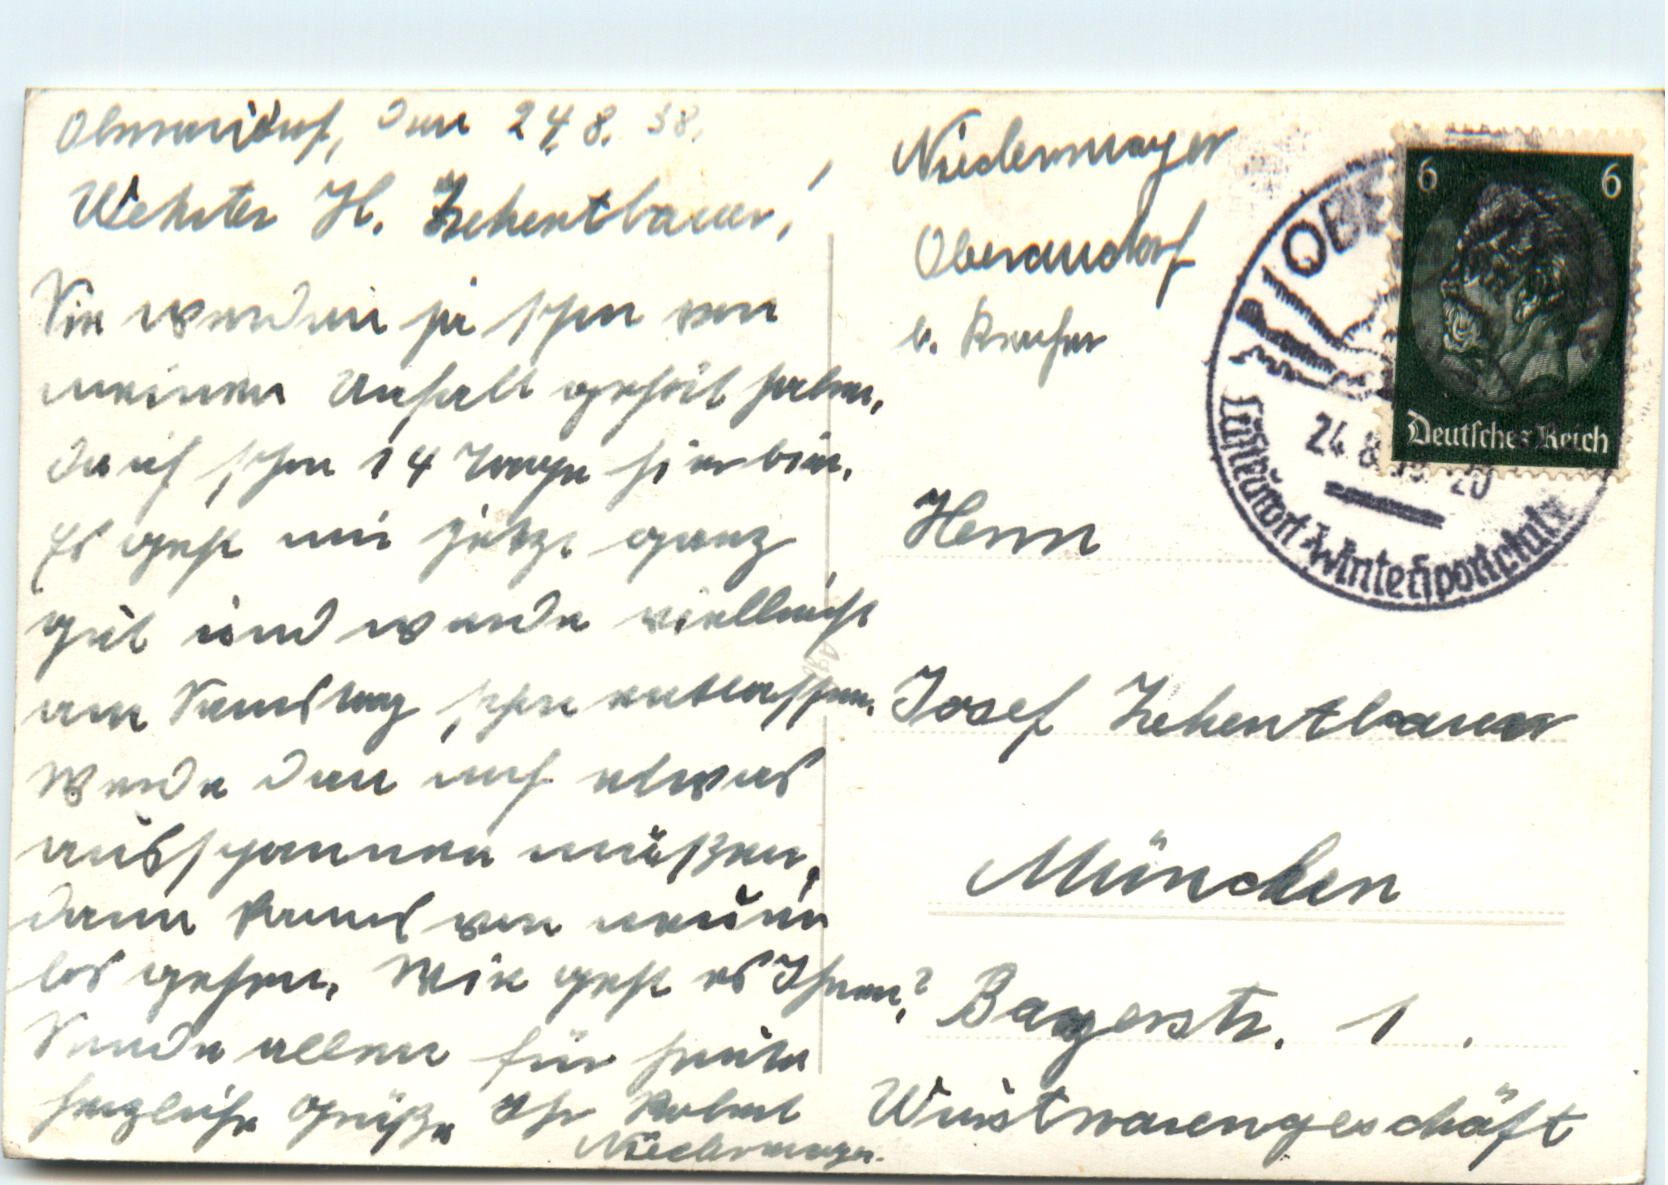 Oberaudorf, den 24.8.38.
Wehrter H. Zehentbauer,!
Sie werden ja schon von
meinen Unfall gehört haben,
da ich schon 14 Tage hier bin.
Es geht mir jetzt ganz
gut und werde vielleicht
am Samstag schon entlassen.
Werde dan noch etwas
ausspannen müßen,
dann kanns von neuem
los gehen. Wie geht es Ihnen?
Sende allen für heute
herzliche Grüße Ihr Robert
Niedermayer.
Niedermayer
Oberaudorf
b. Kiefer
Herrn
Josef Zehentbauer
München
Bayerstr. 1.
Wurstwarengeschäft
6 6
Deutsches Reich
OBE
24.8.38.-20
Luftkurort Wintersportplatz